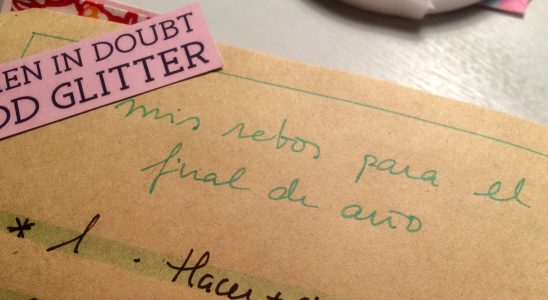 HEN IN DOUBT
DD GLITTER
mis retos para el
final de año
* 1. Hacer